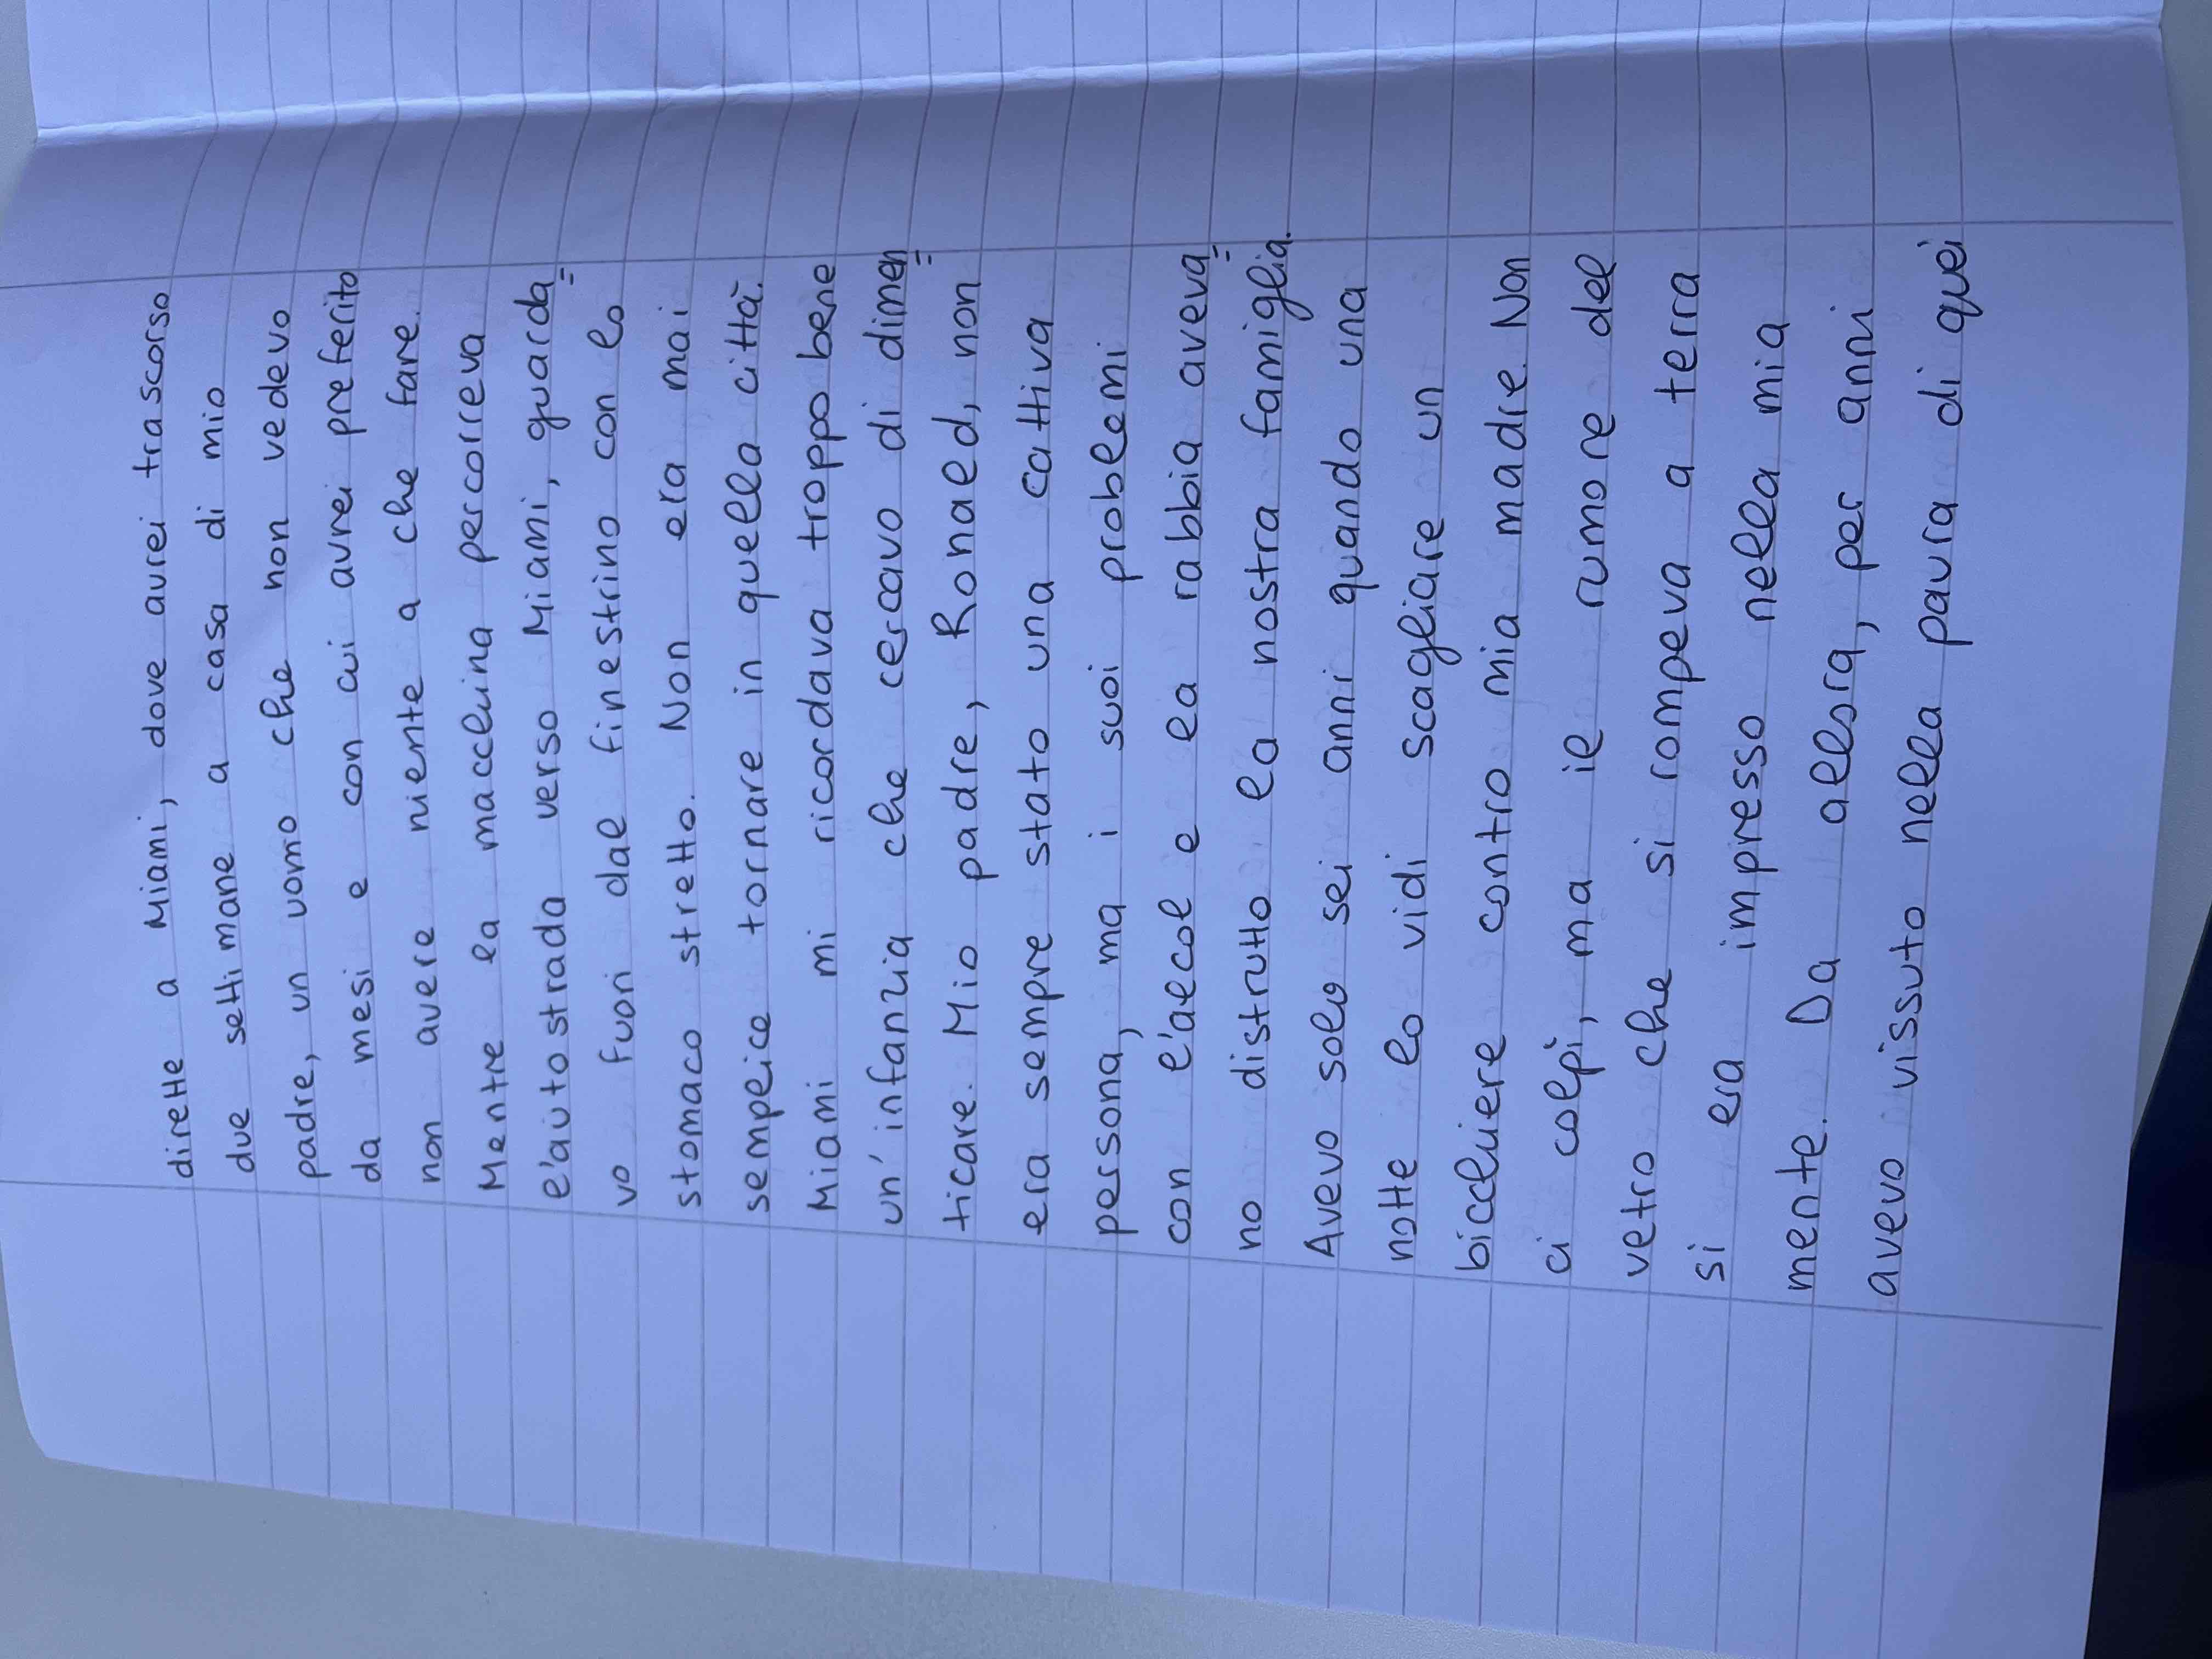 dirette a Miami, dove avrei trascorso
due settimane a casa di mio
padre, un uomo che non vedevo
da mesi e con cui avrei preferito
non avere niente a che fare.
Mentre la macchina percorreva
l'autostrada verso Miami, guarda=
vo fuori dal finestrino con lo
stomaco stretto. Non era mai
semplice tornare in quella città.
Miami mi ricordava troppo bene
un'infanzia che cercavo di dimen=
ticare. Mio padre, Ronald, non
era sempre stato una cattiva
persona, ma i suoi problemi
con l'alcol e la rabbia aveva=
no distrutto la nostra famiglia.
Avevo solo sei anni quando una
notte lo vidi scagliare un
bicchiere contro mia madre. Non
ci colpì, ma il rumore del
vetro che si rompeva a terra
si era impresso nella mia
mente. Da allora, per anni
avevo vissuto nella paura di quei